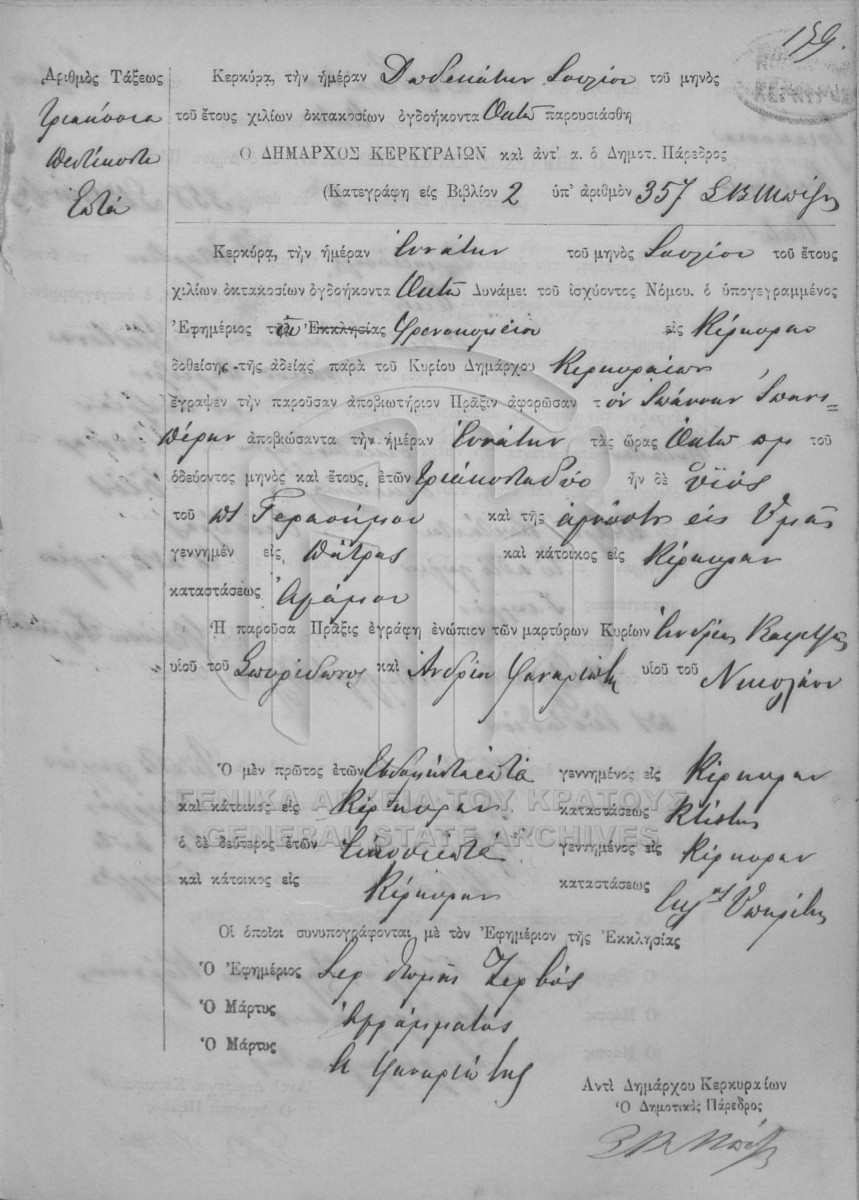 159.
Ἀριθμὸς Τάξεως
Τριακόσια
πεντήκοντα
Ἑπτά
Κερκύρᾳ, τὴν ἡμέραν Δωδεκάτην Ἰουλίου τοῦ μηνὸς
τοῦ ἔτους χιλίων ὀκτακοσίων ὀγδοήκοντα Ὀκτὼ παρουσιάσθη
Ο ΔΗΜΑΡΧΟΣ ΚΕΡΚΥΡΑΙΩΝ καὶ ἀντ' α. ὁ Δημοτ. Πάρεδρος
(Κατεγράφη εἰς Βιβλίον 2 ὑπ' ἀριθμὸν 357
Κερκύρᾳ, τὴν ἡμέραν Ἐννάτην τοῦ μηνὸς Ἰουλίου τοῦ ἔτους
χιλίων ὀκτακοσίων ὀγδοήκοντα Ὀκτὼ Δυνάμει τοῦ ἰσχύοντος Νόμου. ὁ ὑπογεγραμμένος
Ἐφημέριος τοῦ Ἐκκλησίας Φρενοκομείου εἰς Κέρκυραν
δοθείσης τῆς ἀδείας παρὰ τοῦ Κυρίου Δημάρχου Κερκυραίων
ἔγραψεν τὴν παροῦσαν ἀποβιωτήριον Πρᾶξιν ἀφορῶσαν τὸν Ἰωάννην
ἀποβιώσαντα τὴν ἡμέραν Ἐννάτην τὰς ὥρας Ὀκτὼ πμ τοῦ
ὁδεύοντος μηνὸς καὶ ἔτους, ἐτῶν τριάκονταδύο ἦν δὲ υἱὸς
τοῦ Γερασίμου καὶ τῆς ἀγνώστη εἰς Ὑμᾶς
γεννημέν εἰς Πάτρας καὶ κάτοικος εἰς Κέρκυραν
καταστάσεως Ἀγάμου
Ἡ παροῦσα Πρᾶξις ἐγράφη ἐνώπιον τῶν μαρτύρων Κυρίων Ἀνδρέας
υἱοῦ τοῦ Σπυρίδωνος καὶ Ἀνδρέου Φαναριώτη υἱοῦ τοῦ Νικολάου
Ὁ μὲν πρῶτος ἐτῶν Ἑβδομήκονταεπτά γεννημένος εἰς Κέρκυραν
καὶ κάτοικος εἰς Κέρκυραν καταστάσεως Κτίστης
ΓΕΝΙΚΑ ΑΡΧΕΙΑ ΤΟΥ ΚΡΑΤΟΥΣ
GENERAL STATE ARCHIVES
ὁ δὲ δεύτερος ἐτῶν Εἰκοσιεπτά γεννημένος εἰς Κέρκυραν
καὶ κάτοικος εἰς Κέρκυραν καταστάσεως Ὑπηρέτης
Οἱ ὁποῖοι συνυπογράφονται μὲ τὸν Ἐφημέριον τῆς Ἐκκλησίας
Ὁ Ἐφημέριος Ιερ Θωμᾶς Ζερβός
Ὁ Μάρτυς Ἀγράμματος
Ὁ Μάρτυς Α Φαναριώτης
Ἀντὶ Δημάρχου Κερκυραίων
Ὁ Δημοτικὸς Πάρεδρος